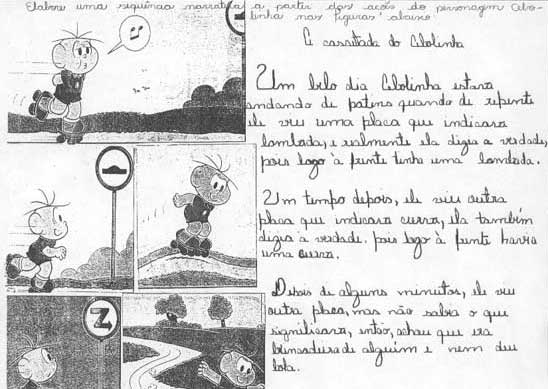 Elabore uma sequência narrativa a partir das ações do personagem Cebo-
linha nas figuras abaixo:
A cassetada do Cebolinha
Um belo dia Cebolinha estava
andando de patins quando de repente
ele viu uma placa que indicava
lombada, e realmente ela dizia a verdade,
pois logo à frente tinha uma lombada.
Um tempo depois, ele viu outra
placa que indicava curva, ela também
dizia a verdade, pois logo à frente havia
uma curva.
Depois de alguns minutos, ele viu
outra placa, mas não sabia o que
significava, então, achou que era
brincadeira de alguém e nem deu
bola.